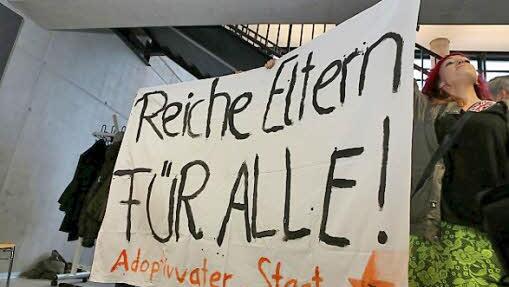 Reiche Eltern
FÜR ALLE!
Adoptivvater Staat